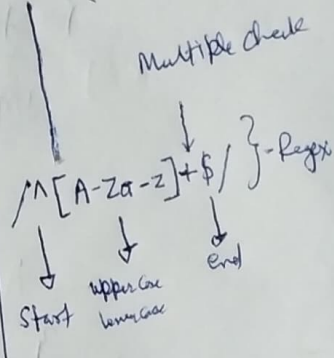 Multiple check
/^[A-Za-z]+$/ } - Regex
Start
upper case
lower case
end